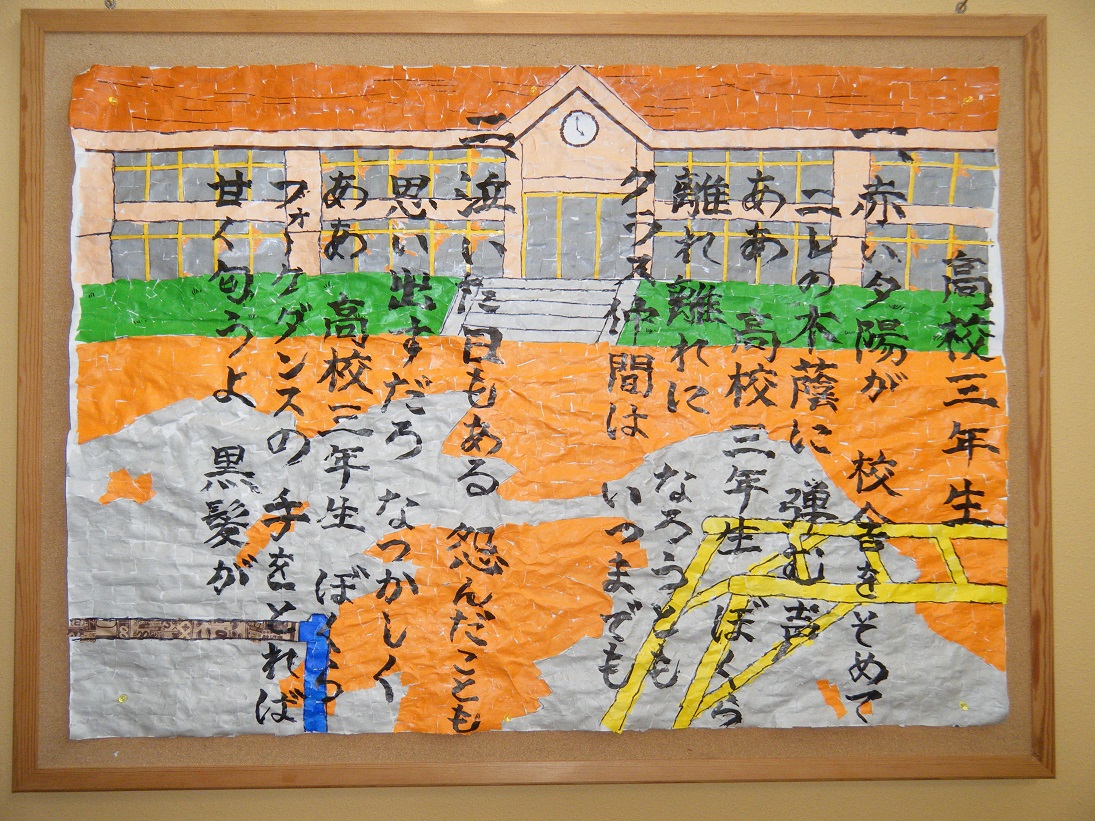 高校三年生
一、赤い夕陽が 校舎をそめて
ニレの木蔭に 弾む声
ああ 高校三年生 ぼくら
離れ離れに なろうとも
クラス仲間は いつまでも
二、泣いた日もある 怨んだことも
思い出すだろ なつかしく
ああ 高校三年生 ぼくら
フォークダンスの 手をとれば
甘く匂うよ 黒髪が